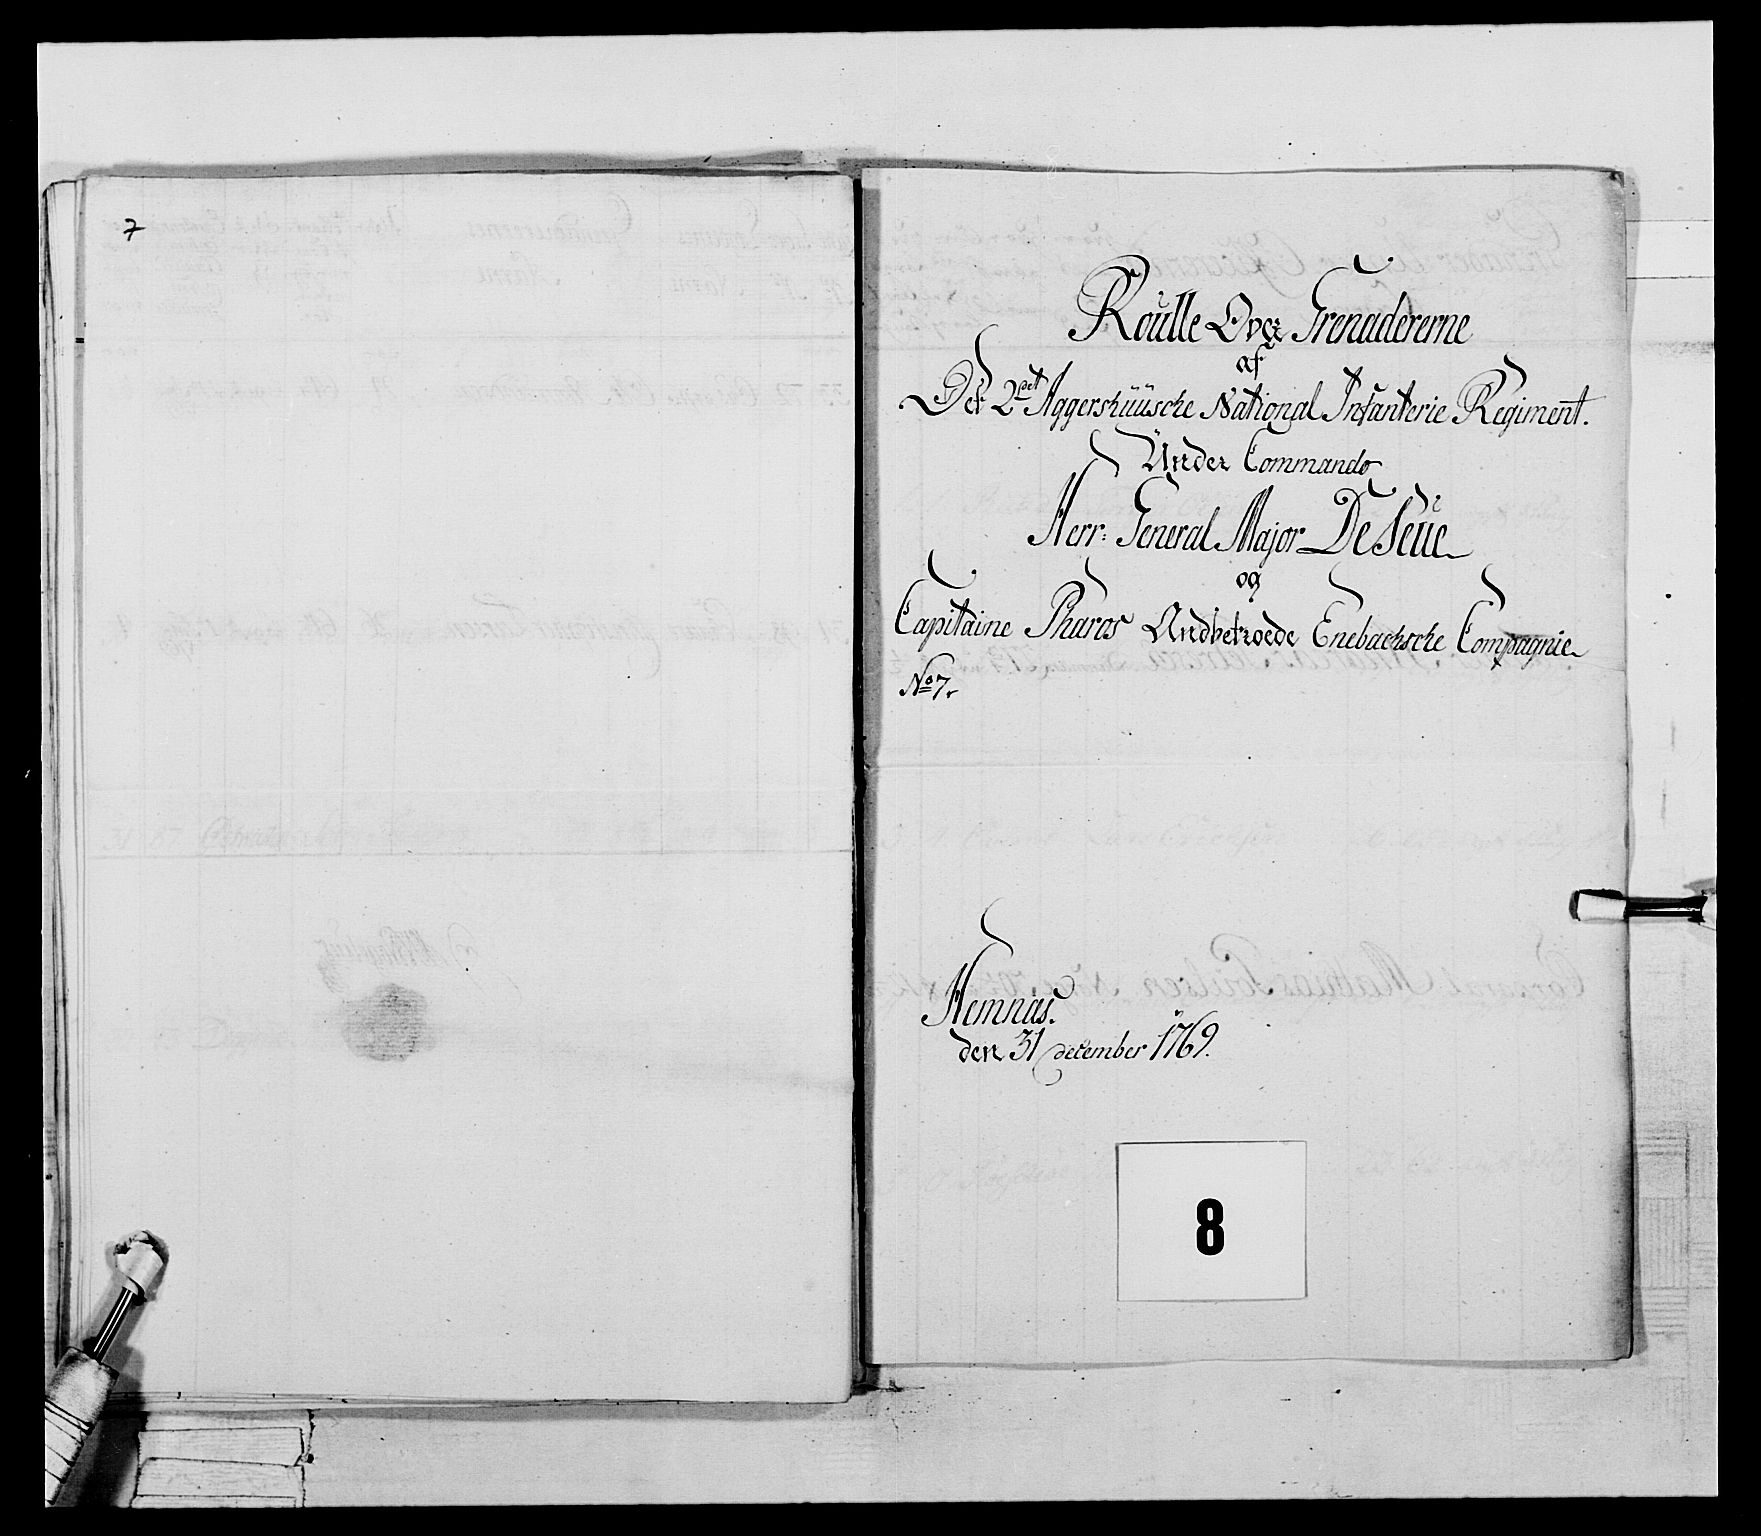 7
Roulle Over Grenadererne
af
Det 2det Aggershuusche National Infanterie Regiment.
Under Commando
Herr: General Major De Seue
og
Capitaine Pharos Andbetroede Enebachsche Compagnie
No 7.
Hemnas.
den 31 december 1769.
8